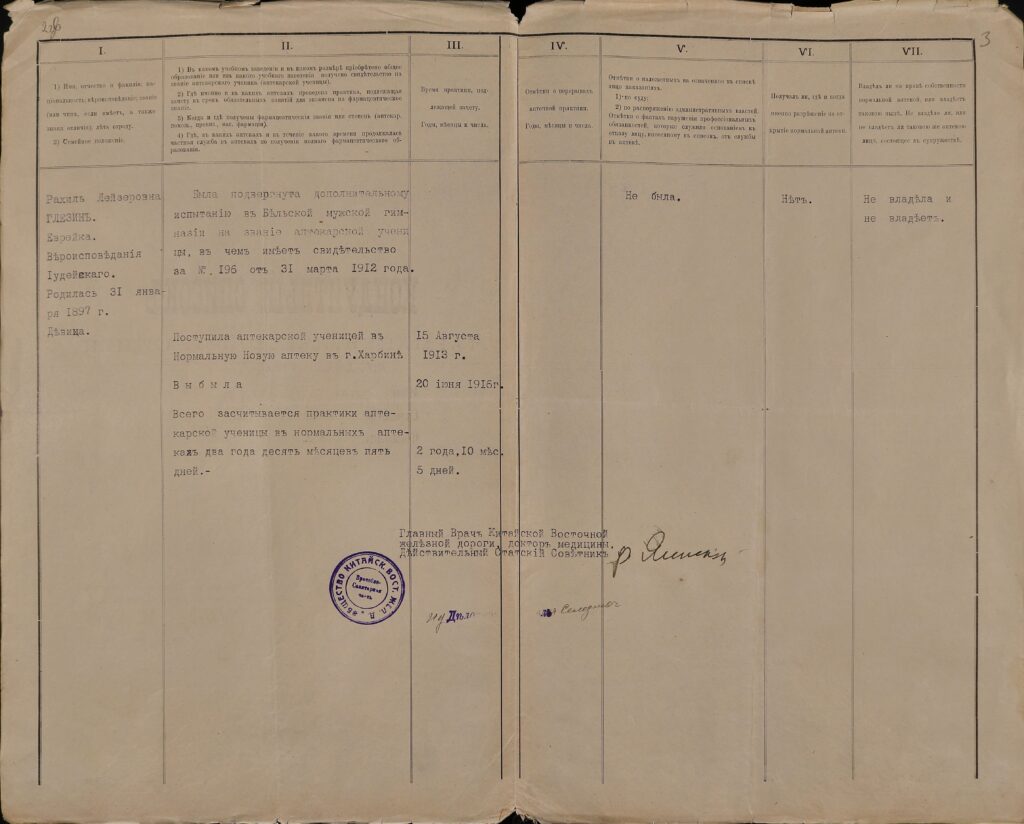 3
I.
1) Имя, отчество и фамилія, на-
ціональность, вѣроисповѣданіе, званіе
(или чинъ, если имѣетъ, а также
знаки отличія), лѣта отроду.
2) Семейное положеніе.
II.
1) Въ какомъ учебномъ заведеніи и въ какомъ размѣрѣ пріобрѣтено общее
образованіе или изъ какого учебнаго заведенія получено свидѣтельство на
званіе аптекарскаго ученика (аптекарской ученицы).
2) Гдѣ именно и въ какихъ аптекахъ проведена практика, подлежащая
зачету въ срокъ обязательныхъ занятій для экзамена на фармацевтическое
званіе.
3) Когда и гдѣ получены фармацевтическія званія или степень (аптекар.
помощн., провиз., маг. фармаціи).
4) Гдѣ, въ какихъ аптекахъ и въ теченіе какого времени продолжалась
частная служба въ аптекахъ по полученіи полнаго фармацевтическаго об-
разованія.
III.
Время практики, под-
лежащей зачету.
Годы, мѣсяцы и числа.
IV.
Отмѣтки о перерывахъ
аптечной практики.
Годы, мѣсяцы и числа.
V.
Отмѣтки о наложенныхъ на означенное въ спискѣ
лицо наказаніяхъ.
1) по суду;
2) по распоряженію административныхъ властей.
Отмѣтки о фактахъ нарушенія профессіональныхъ
обязанностей, которые служили основаніемъ къ
отказу лицу, внесенному въ списокъ, отъ службы
въ аптекѣ.
VI.
Получалъ ли, гдѣ и когда
именно разрѣшеніе на от-
крытіе нормальной аптеки.
VII.
Владѣлъ ли на правѣ собственности
нормальной аптекой, или владѣетъ
таковою нынѣ. Не владѣло ли, или
не владѣетъ ли таковою же аптекою
лицо, состоящее въ супружествѣ.
Рахиль Лейзеровна
ГЛЕЗИНЪ.
Еврейка.
Вѣроисповѣданія
Іудейскаго.
Родилась 31 янва-
ря 1897 г.
Дѣвица.
Была подвергнута дополнительному
испытанію въ Бѣльской мужской гим-
назіи на званіе аптекарской учени
цы, въ чемъ имѣетъ свидѣтельство
за №. 196 отъ 31 марта 1912 года.
Поступила аптекарской ученицей въ
Нормальную Новую аптеку въ г.Харбинѣ
15 Августа
1913 г.
В ы б ы л а
20 іюня 1916г.
Всего засчитывается практики апте-
карской ученицы въ нормальныхъ апте-
кахъ два года десять мѣсяцевъ пять
дней.-
2 года,10 мѣс.
5 дней.
Не была.
Нѣтъ.
Не владѣла и
не владѣетъ.
Главный Врачъ Китайской Восточной
желѣзной дороги, докторъ медицины,
Дѣйствительный Статскій Совѣтникъ
ОБЩЕСТВО КИТАЙСК. ВОСТ. ЖЕЛ. Д.
Врачебно-
Санитарная
часть